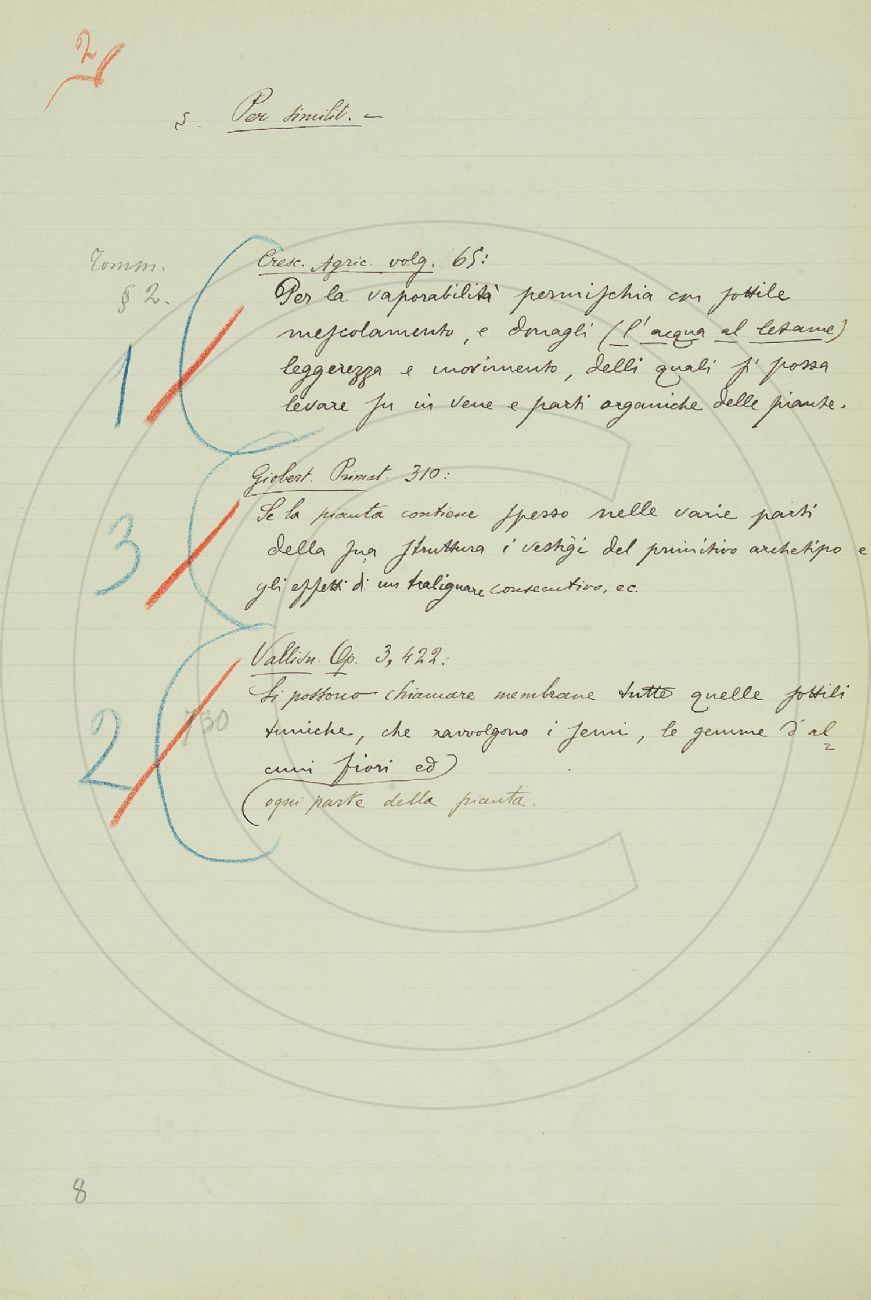 2
§. Per similit. —
Tomm.
§ 2.
Cresc. Agric. volg. 65:
Per la vaporabilità permischia con sottile
mescolamento, e donagli (l'acqua al letame)
leggerezza e movimento, delli quali si possa
levare su in vene e parti organiche delle piante.
1
Giobert. Primat. 310:
Se la pianta contiene spesso nelle varie parti
della sua struttura i vestigi del primitivo archetipo e
gli effetti di un tralignare consecutivo, ec.
3
Vallisn. Op. 3, 422:
Si possono chiamare membrane tutte quelle sottili
tuniche, che ravvolgono i semi, le gemme d'al
cuni fiori ed
ogni parte della pianta.
2
730
8